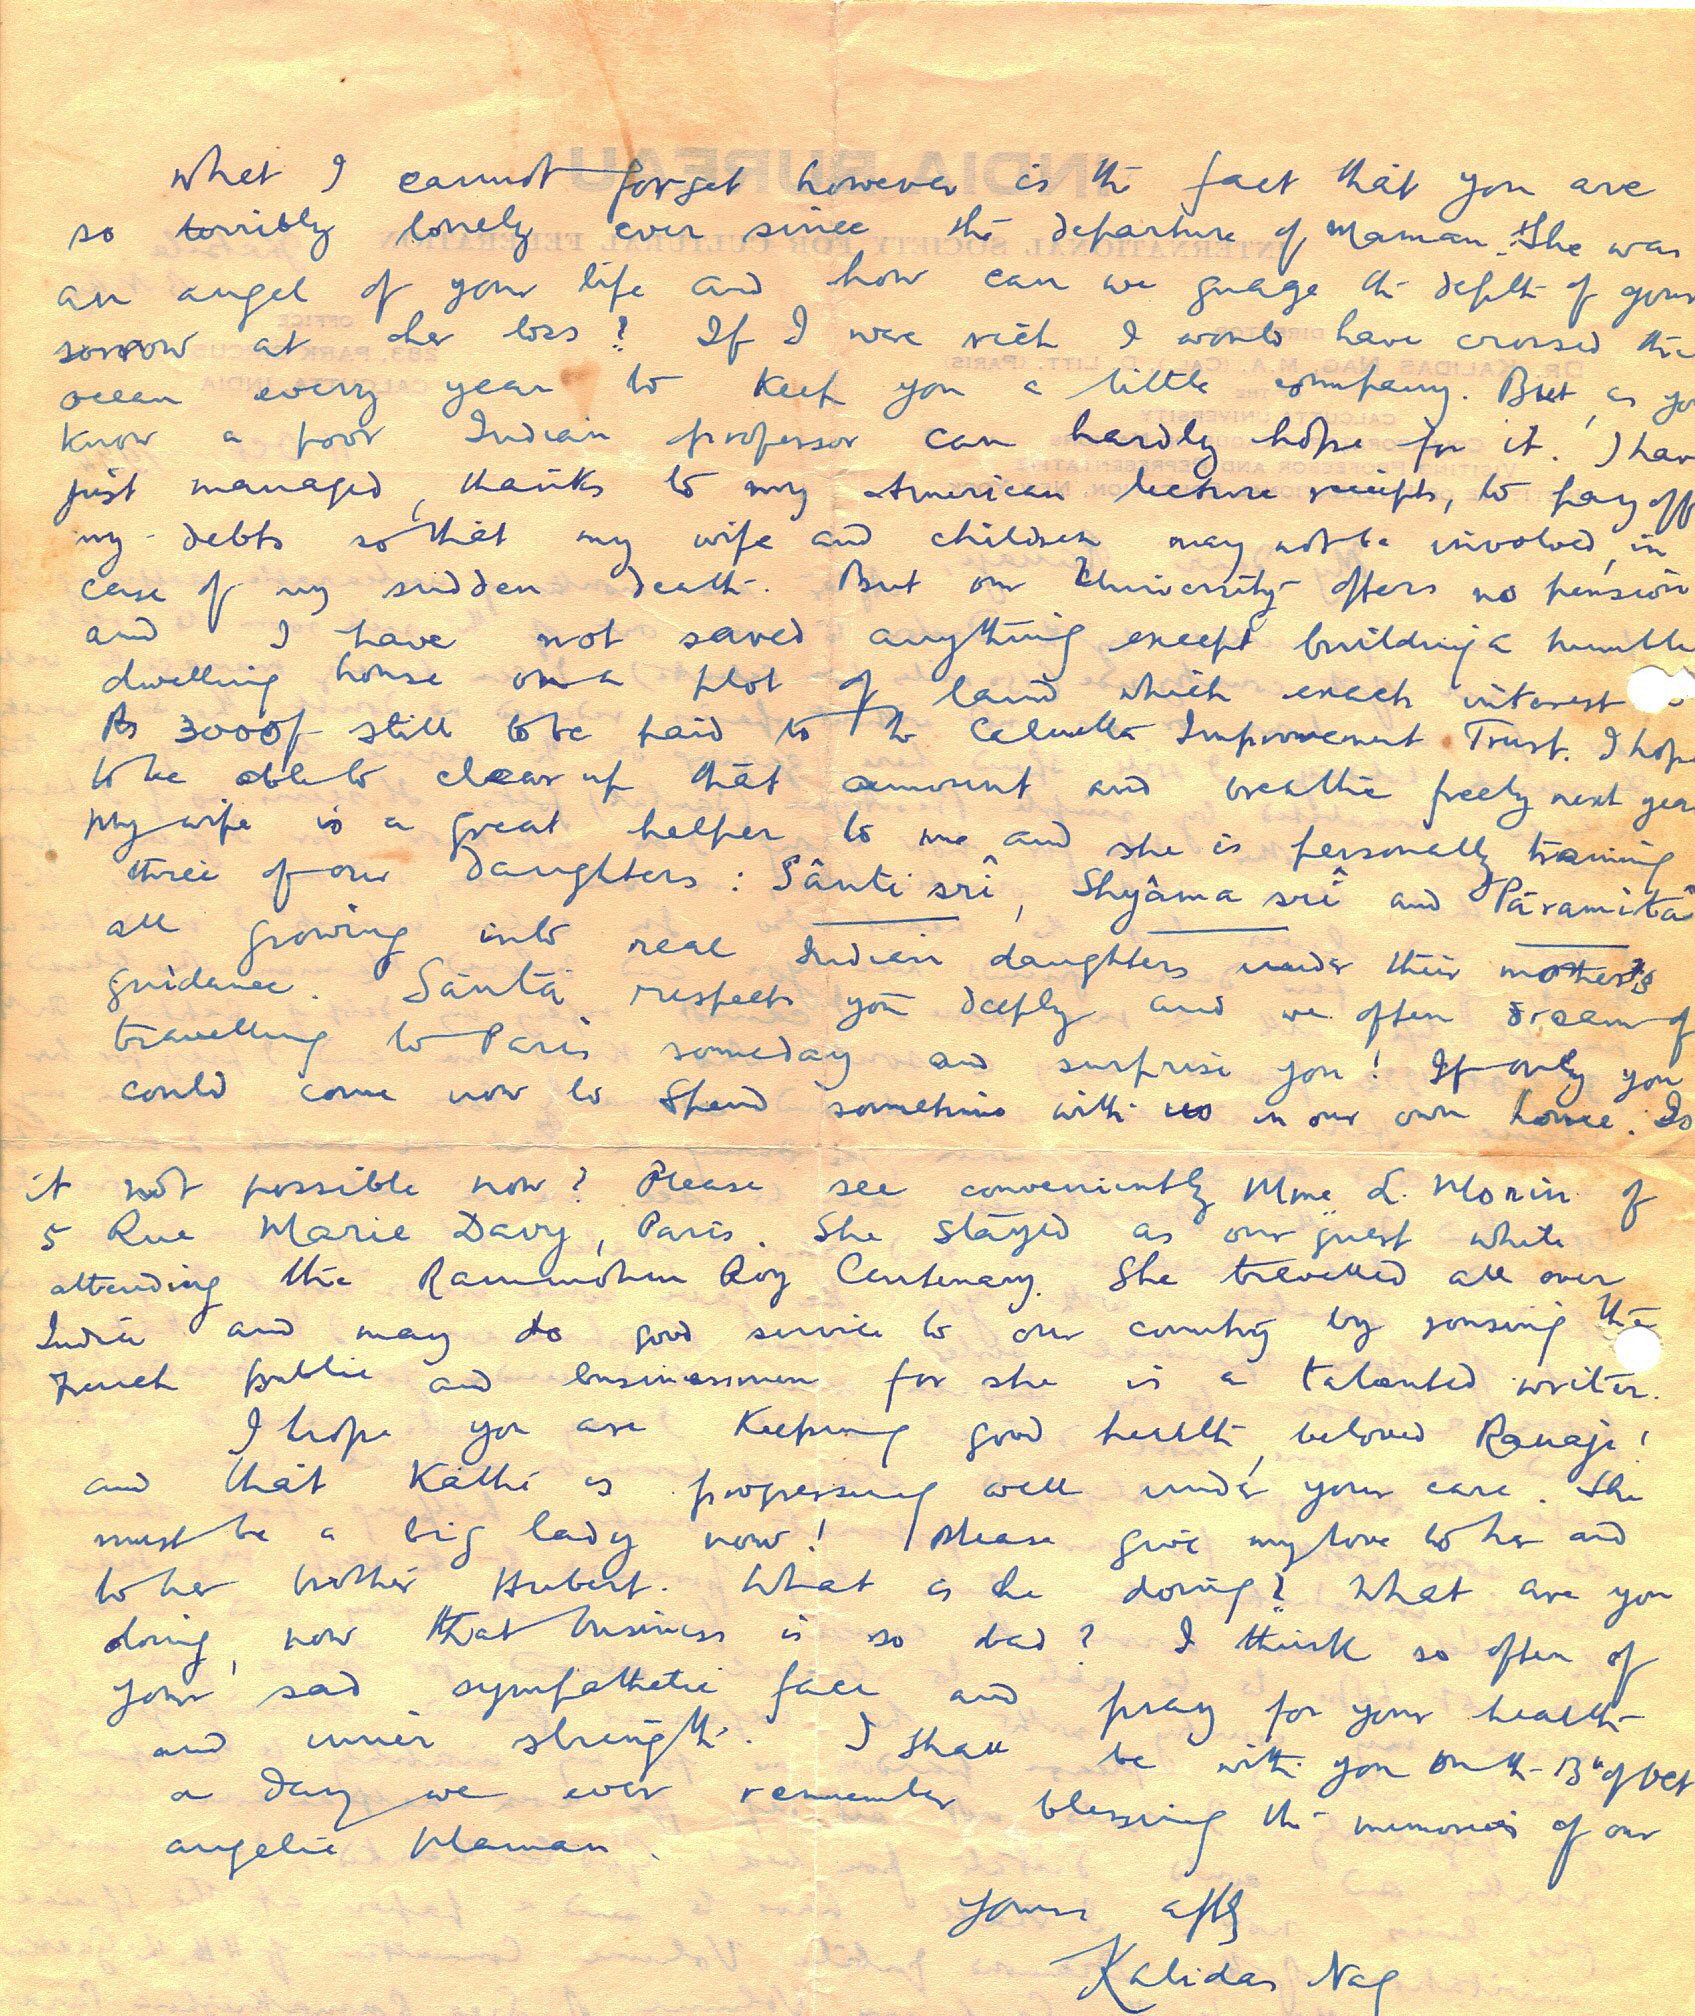 What I cannot forget however is the fact that you are
so terribly lonely ever since the departure of Maman. She was
an angel of your life and how can we guage the depth of your
sorrow at her loss? If I were rich I would have crossed the
ocean every year to keep you a little company. But, as you
know a poor Indian professor can hardly hope for it. I have
just managed, thanks to my American lecture receipts, to pay off
my debts so that my wife and children may not be involved, in
case of my sudden death. But our University offers no pension
and I have not saved anything except building a humble
dwelling house on a plot of land which exacts interest
Rs 3000/- still to be paid to the Calcutta Improvement Trust. I hope
to be able to clear up that amount and breathe freely next year
My wife is a great helper to me and she is personally training
three of our daughters: Sânti srî, Shyâma srî and Pâramitâ
all growing into real Indian daughters under their mother's
guidance. Sântâ respects you deeply and we often dream of
travelling to Paris someday and surprise you! If only you
could come now to spend sometime with us in our own home. Is
it not possible now? Please see conveniently Mme L. Morin of
5 Rue Marie Davy, Paris. She stayed as our guest while
attending the Rammohun Roy Centenary. She travelled all over
India and may do good service to our country by rousing the
French public and businessmen for she is a talented writer.
I hope you are keeping good health, beloved Ranaji!
and that Kathé is progressing well under your care. She
must be a big lady now! Please give my love to her and
to her brother Hubert. What is he doing? What are you
doing, now that business is so bad? I think so often of
your sad sympathetic face and pray for your health
and inner strength. I shall be with you on the 13th of Oct
a day we ever remember blessing the memories of our
angelic Maman.
Yours affly
Kalidas Nag
INDIA BUREAU
INTERNATIONAL SOCIETY FOR CULTURAL FEDERATION
OFFICE
283, PARK CIRCUS
CALCUTTA, INDIA
DIRECTOR
DR. KALIDAS NAG, M.A. (CAL.), D. LITT. (PARIS)
CALCUTTA UNIVERSITY
VISITING PROFESSOR AND REPRESENTATIVE